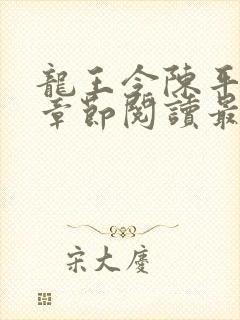 龍王令陳平
章節閱讀最
宋大慶